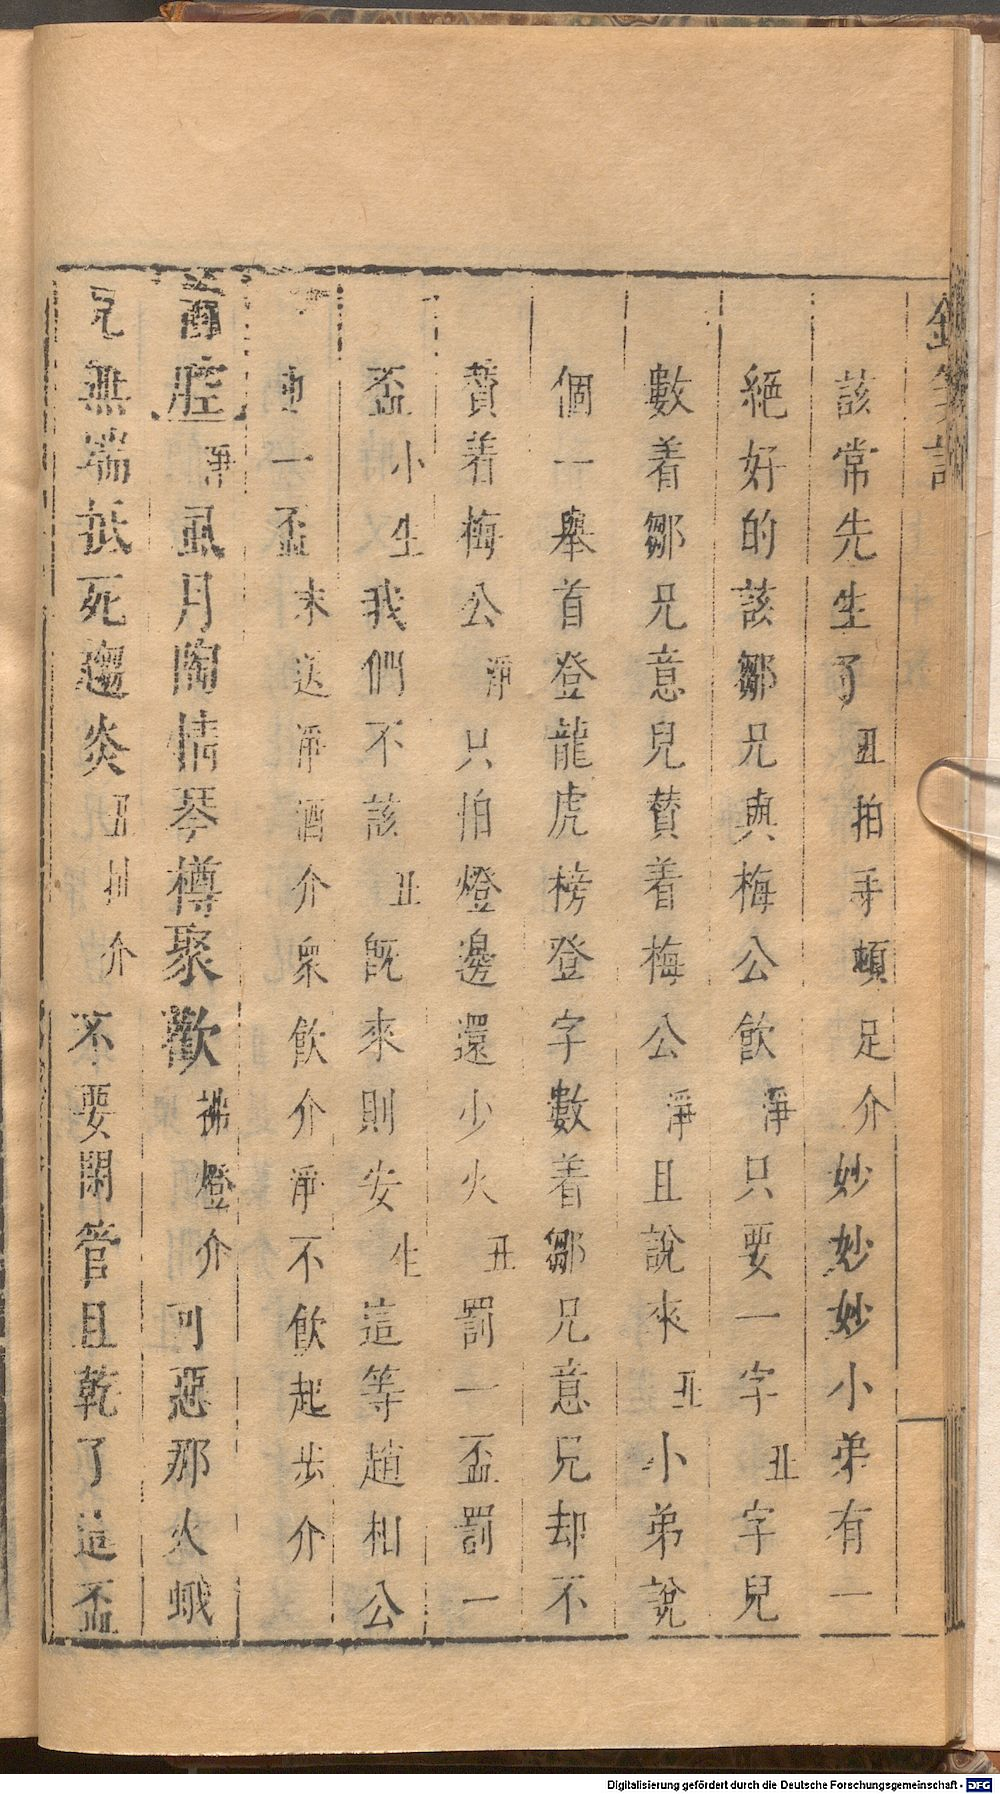 金箋記
該常先生了丑拍手頓足介妙妙妙小弟有一
絕好的該鄒兄與梅公飲淨只要一字丑字兒
數着鄒兄意兒贊着梅公淨且說來丑小弟說
個一舉首登龍虎榜登字數着鄒兄意兄却不
贊着梅公淨只怕燈邊還少火丑罰一盃罰一
盃小生我們不該丑既來則安生這等趙相公
一盃末送淨酒介衆飲介淨不飲起步介
腔淨風月陶情琴樽聚歡拂燈介可惡那火蛾
兒無端抵死趨炎丑扯介不要閑管且乾了這盃
Digitalisierung gefördert durch die Deutsche Forschungsgemeinschaft - DFG